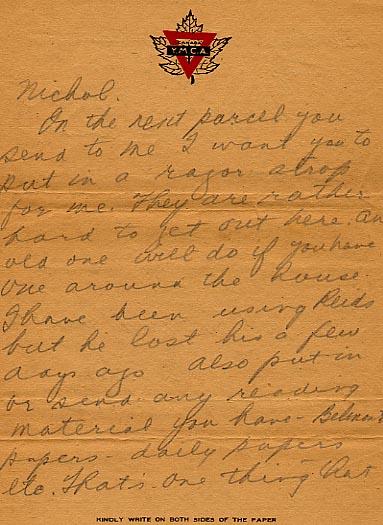 CANADIAN
Y.M.C.A.
Nichol.
On the next parcel you
send to me I want you to
put in a razor strop
for me. They are rather
hard to get out here. An
old one will do if you have
one around the house.
I have been using Reids
but he lost his a few
days ago also put in
or send any reading
material you have -
papers - daily papers -
etc. That's one thing that
KINDLY WRITE ON BOTH SIDES OF THE PAPER